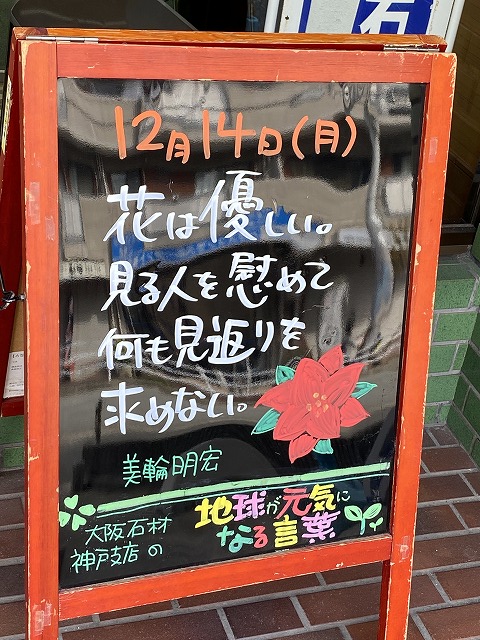 石
12月14日(月)
花は優しい。
見る人を慰めて
何も見返りを
求めない。
美輪明宏
大阪石材
神戸支店の
地球が元気に
なる言葉